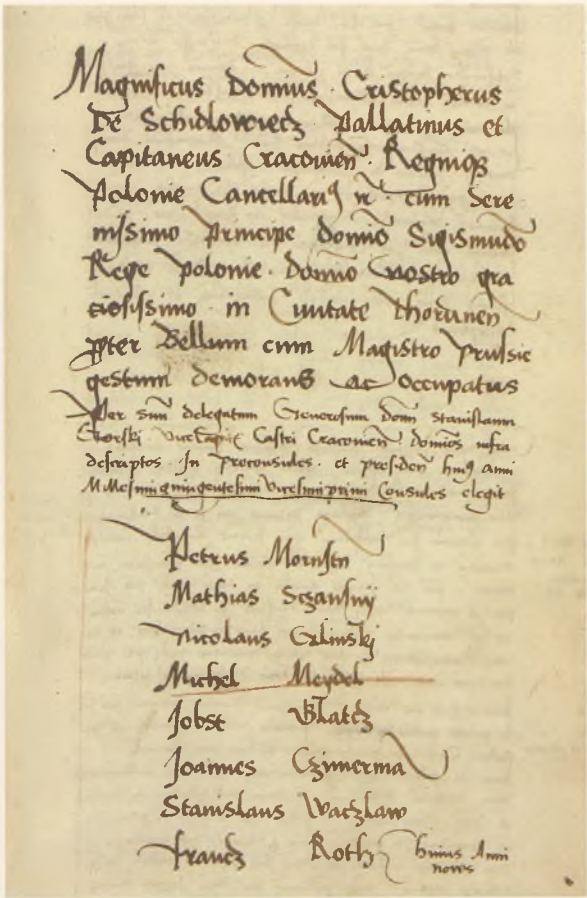 Magnificus Domīus Cristopherus
De Schidlowiecz Pallatinus et
Capitaneus Cracouien̄ Regniqȝ
Polonie Cancellariꝰ cum Sere
nissimo Principe domīo Sigismūdo
Rege Polonie domīno nostro gra
ciosissimo in Ciuitate Thorunen̄
ꝓpter Bellum cum Magistro Prussie
gestum demorans ac Occupatus
Per suū delegatum Generosum Domī Stanislaum
Gorski Castri Cracouien̄ domīos infra
descriptos In Proconsules et presiden̄ huiꝰ anni
Millesimi quingentesimi vicesimi primi Consules elegit
Petrus Mornstn
Mathias
Nicolaus Glinskj
Michel Meydel
Jobst Glatcz
Joannes Czimerma
Stanislaus Waczlaw
Francz Roth huius Anni
noves